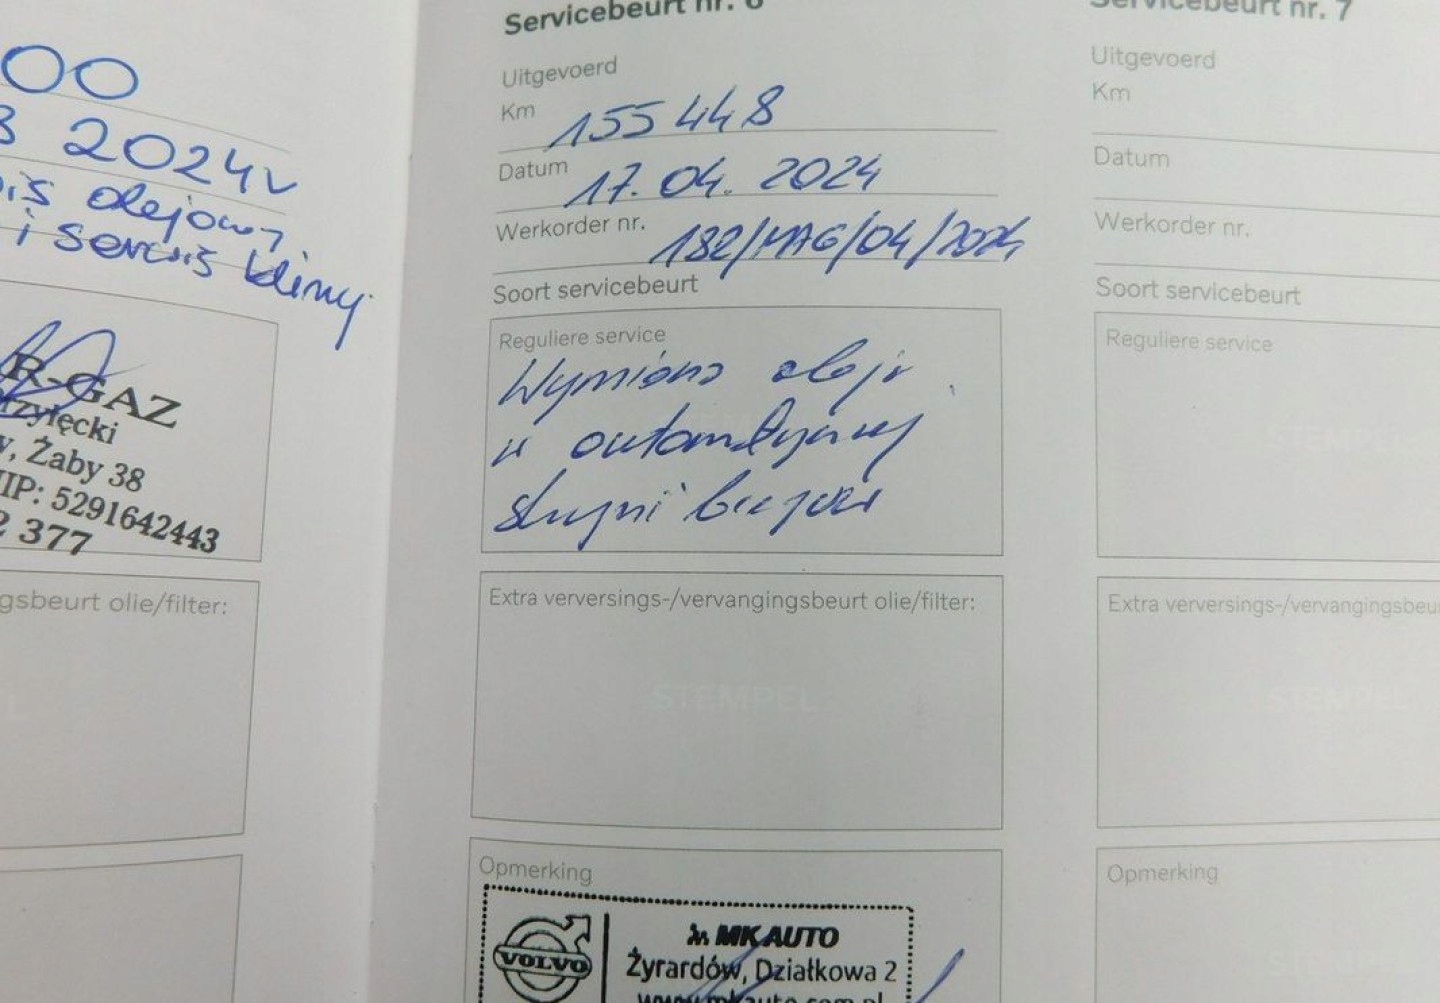 00
3 2024r
olejowy
i serwis klimy
R-GAZ
rzyłęcki
Żaby 38
NIP: 5291642443
2 377
gsbeurt olie/filter:
Servicebeurt nr. 6
Uitgevoerd
Km 155 448
Datum 17.04.2024
Werkorder nr. 182/MAG/04/2024
Soort servicebeurt
Reguliere service
Wymiana oleju
w automatycznej
skrzyni biegów
Extra verversings-/vervangingsbeurt olie/filter:
STEMPEL
Opmerking
VOLVO
MK AUTO
Żyrardów, Działkowa 2
www.mkauto.com.pl
Servicebeurt nr. 7
Uitgevoerd
Km
Datum
Werkorder nr.
Soort servicebeurt
Reguliere service
STEMPEL
Extra verversings-/vervangingsbeu
STEMPEL
Opmerking